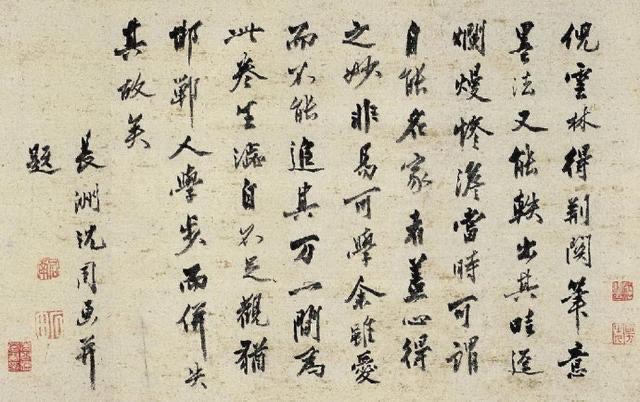 倪雲林得荊關筆意
墨法又能軼出其畦逕
爛熳慘澹當時可謂
自能名家者蓋心得
之妙非易可學余雖愛
而不能追其万一間為
此卷生澁自不足觀猶
邯鄲人學步而併失
其故矣
長洲沈周畫并
題